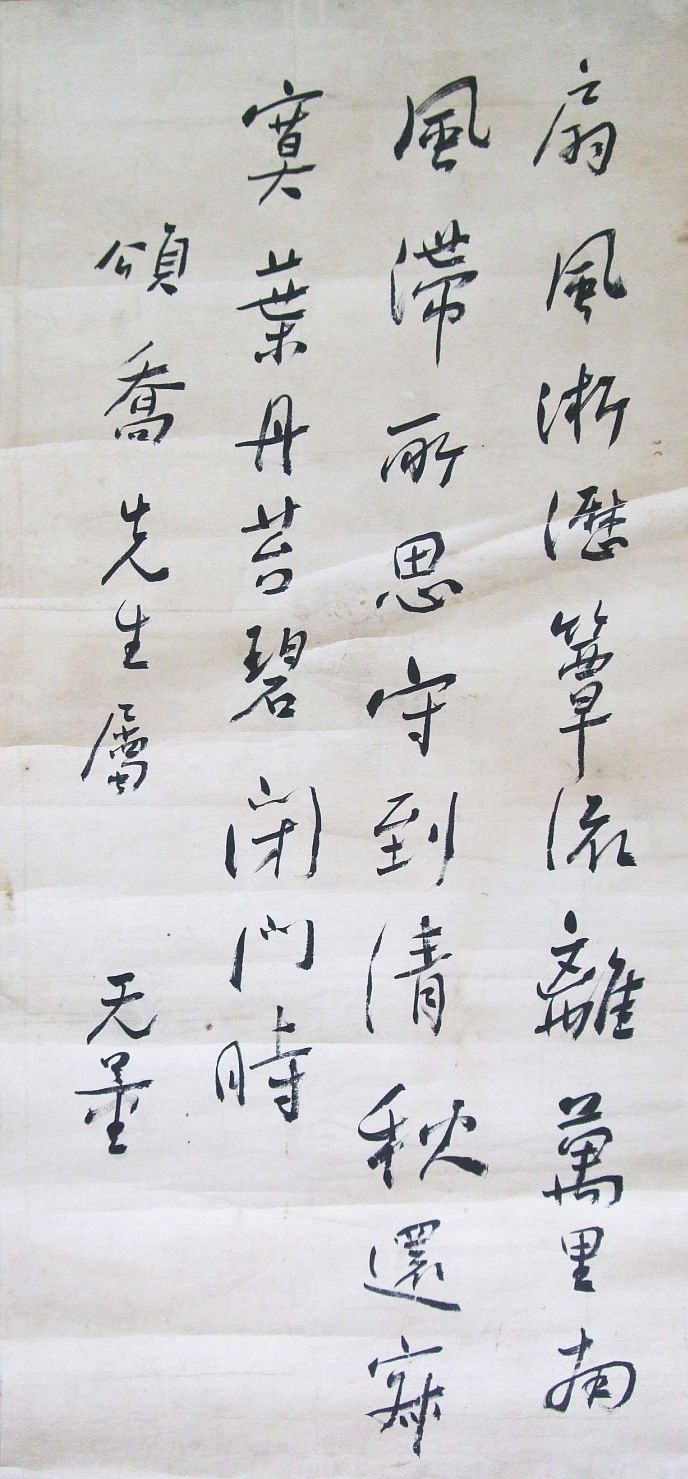 扇風淅瀝簟流離萬里南
風滯所思守到清秋還寂
寞葉丹苔碧閉門時
頌喬先生屬 无量